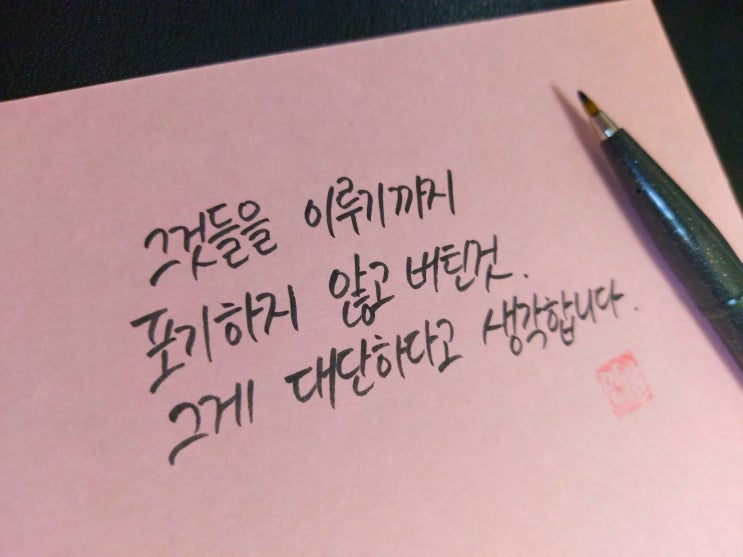 그것들을 이루기까지
포기하지 않고 버틴것.
그게 대단하다고 생각합니다.